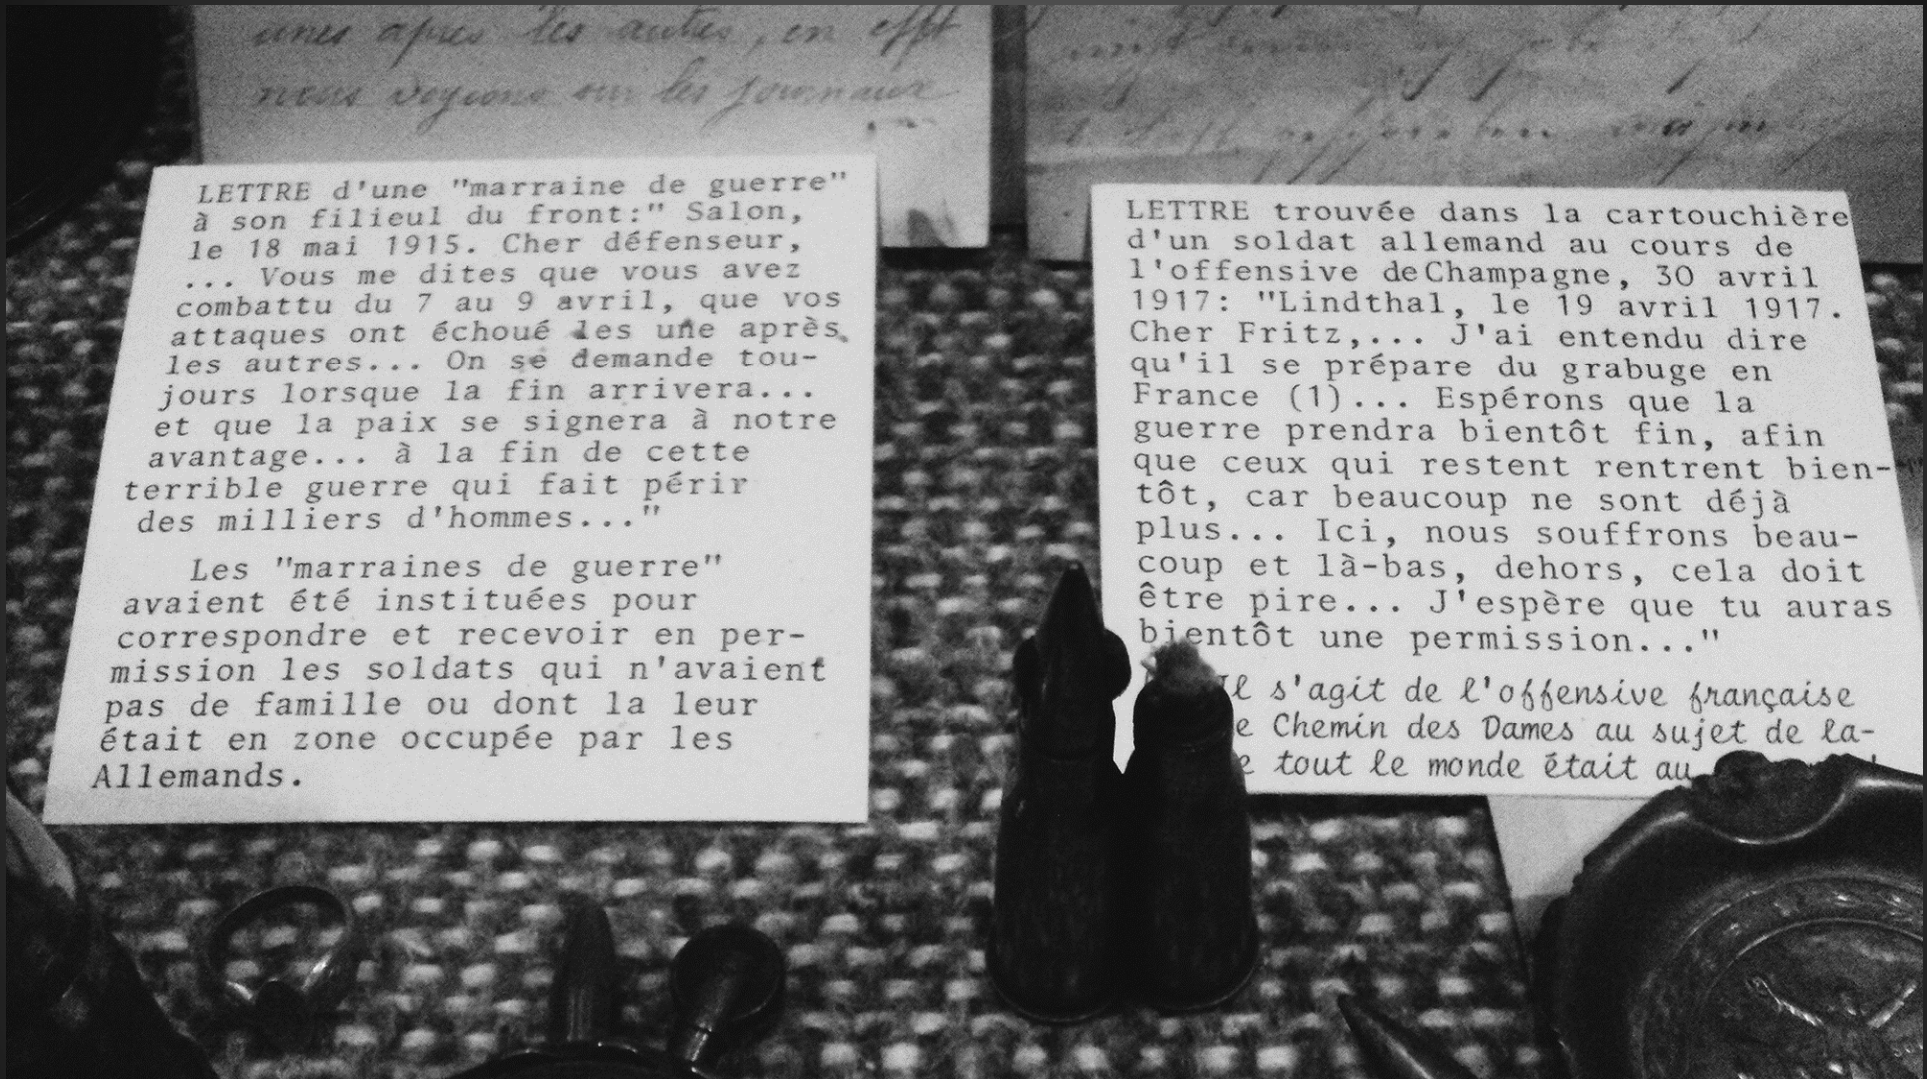 unes après les autres, en effet
nous voyions sur les journaux
LETTRE d'une "marraine de guerre"
à son filieul du front:" Salon,
le 18 mai 1915. Cher défenseur,
... Vous me dites que vous avez
combattu du 7 au 9 avril, que vos
attaques ont échoué les une après
les autres... On se demande tou-
jours lorsque la fin arrivera...
et que la paix se signera à notre
avantage... à la fin de cette
terrible guerre qui fait périr
des milliers d'hommes..."
Les "marraines de guerre"
avaient été instituées pour
correspondre et recevoir en per-
mission les soldats qui n'avaient
pas de famille ou dont la leur
était en zone occupée par les
Allemands.
LETTRE trouvée dans la cartouchière
d'un soldat allemand au cours de
l'offensive de Champagne, 30 avril
1917: "Lindthal, le 19 avril 1917.
Cher Fritz,... J'ai entendu dire
qu'il se prépare du grabuge en
France (1)... Espérons que la
guerre prendra bientôt fin, afin
que ceux qui restent rentrent bien-
tôt, car beaucoup ne sont déjà
plus... Ici, nous souffrons beau-
coup et là-bas, dehors, cela doit
être pire... J'espère que tu auras
bientôt une permission..."
Il s'agit de l'offensive française
Chemin des Dames au sujet de la-
tout le monde était au